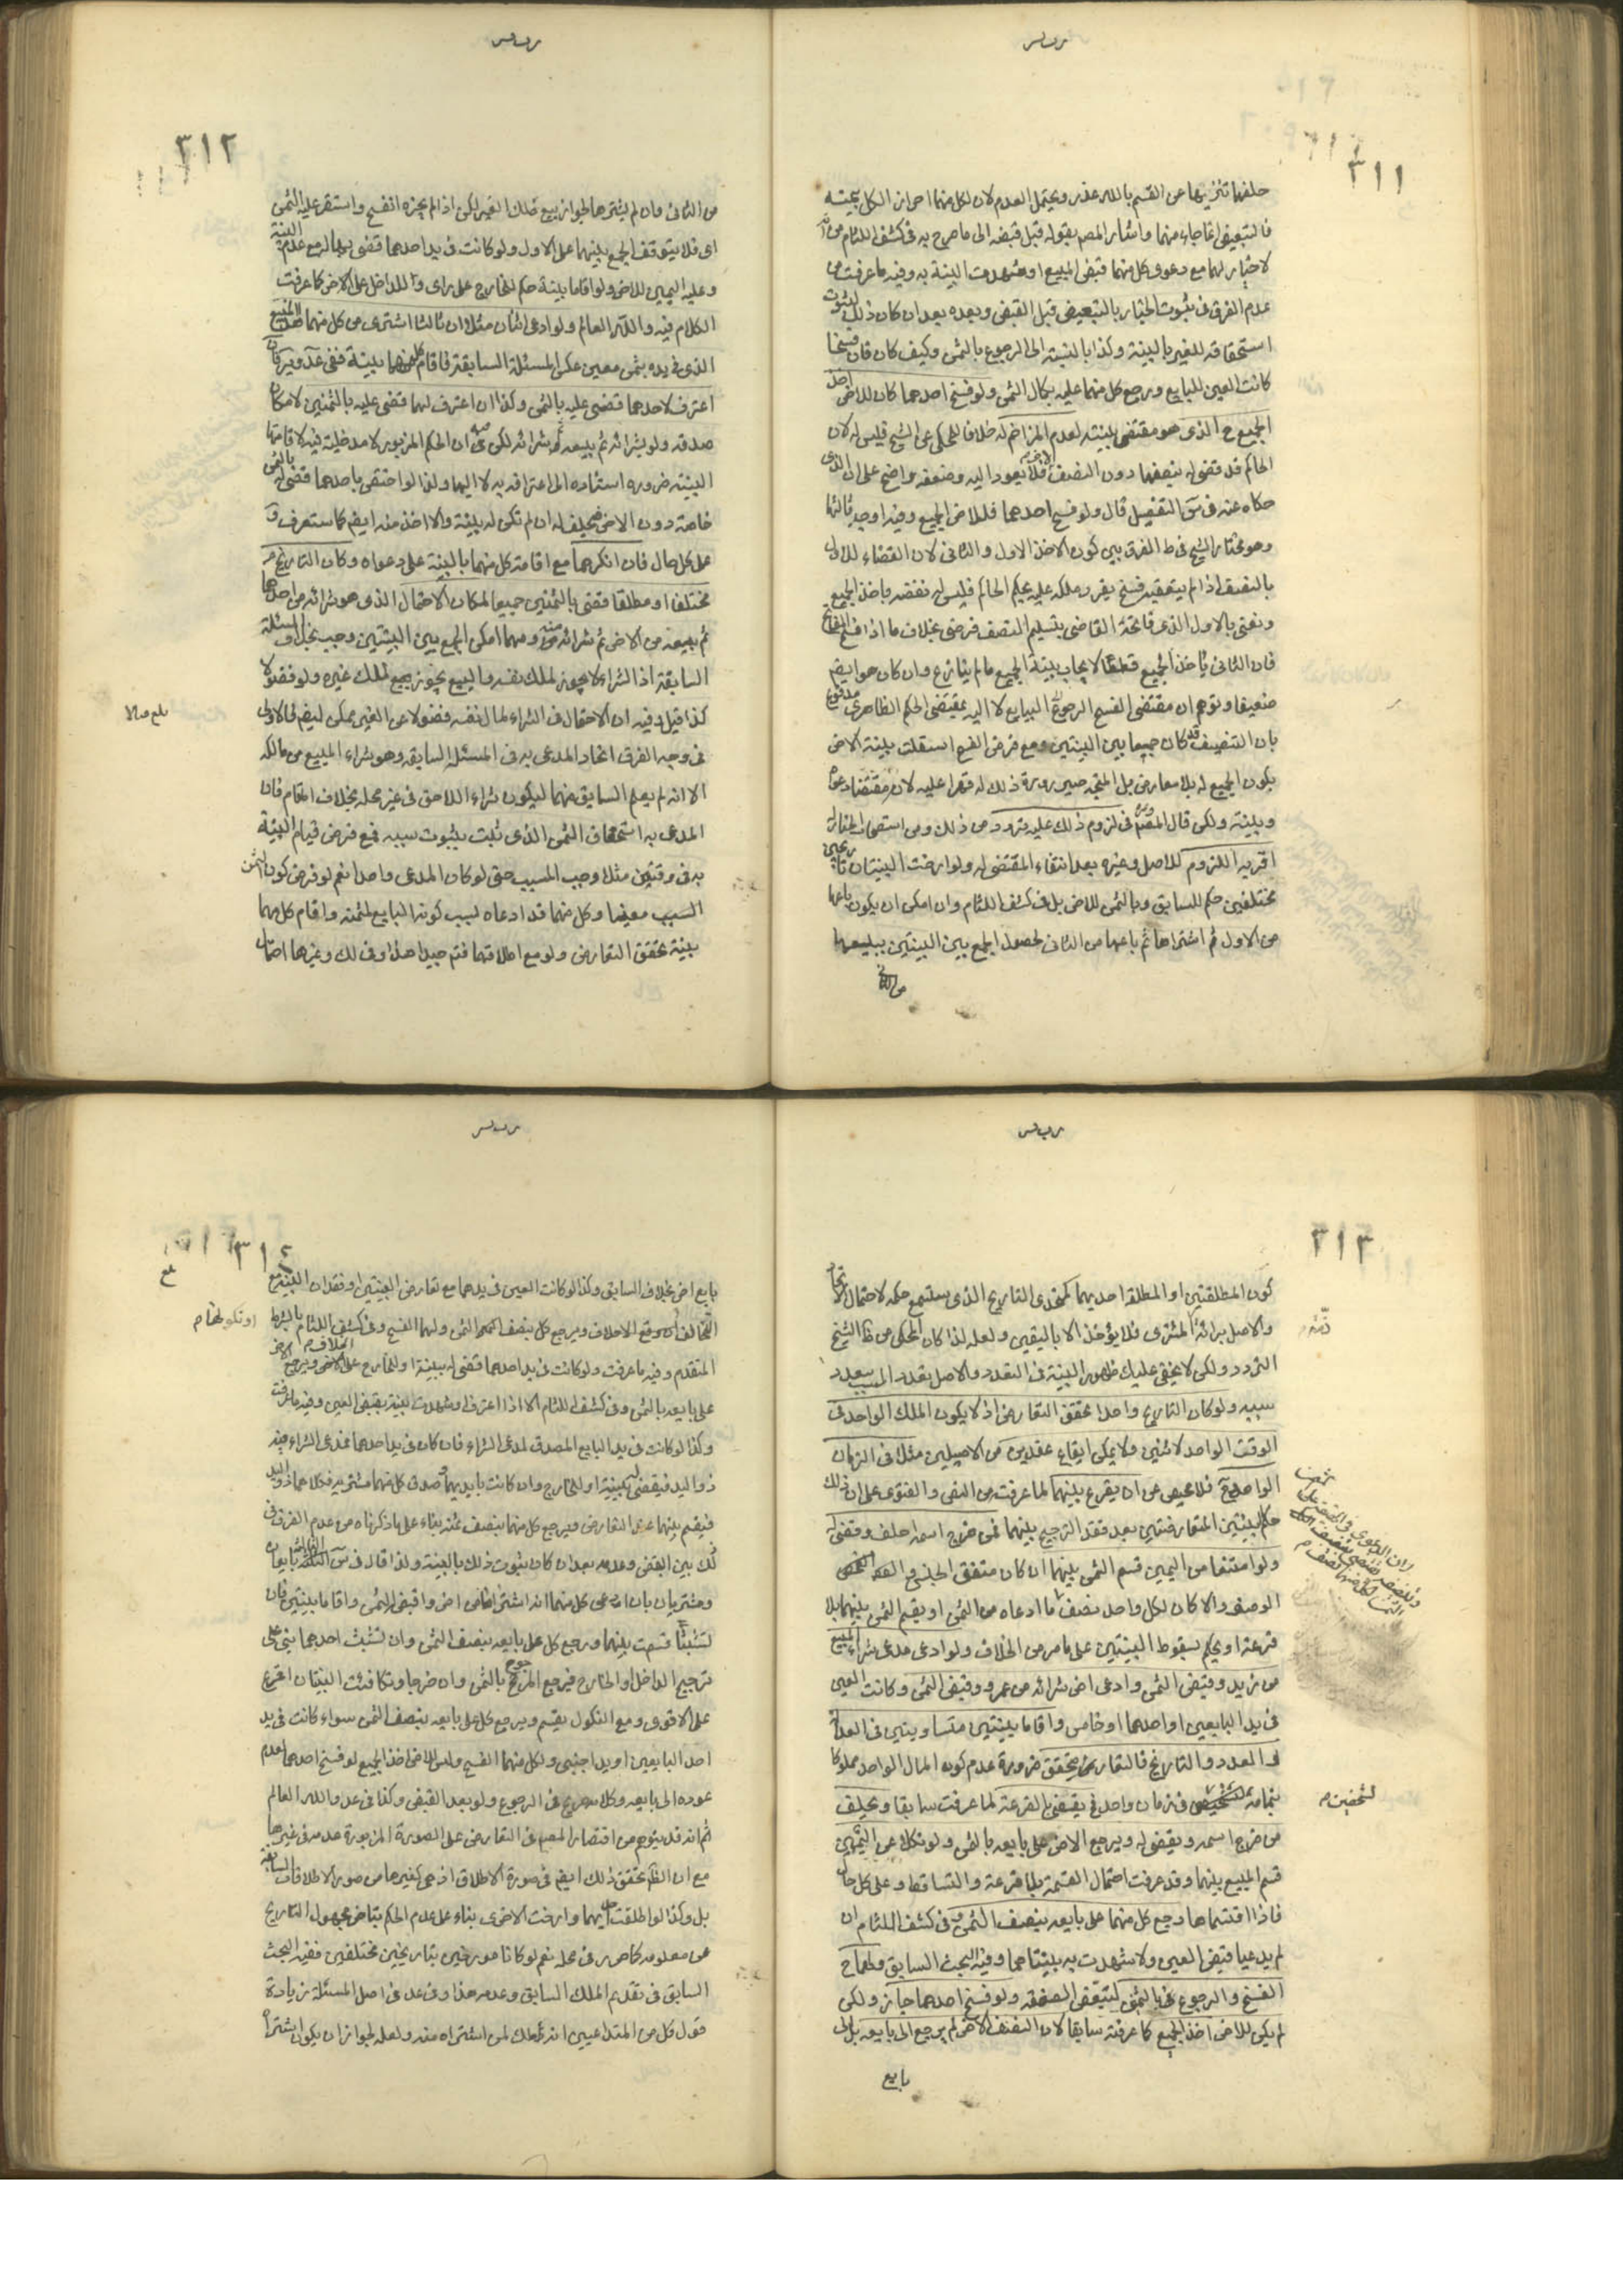 ٣١١
حلفهما تنزيها عن القسم بالله عذر ويحتمل العدم لان لكل منهما احراز الكل ببينته
فالتبعيض انما جاء منهما واشار المصم بقوله قبل قبضه الى ما صرح به في كشف اللثام من
لا خيار لهما مع دعوى كل منهما قبض المبيع او شهدت البينة به وفيه ما عرفت من
عدم الفرق في ثبوت الخيار بالتبعيض قبل القبض وبعده بعد ان كان ذلك لثبوت
استحقاقه للغير بالبينة وكذا بالنسبة الى الرجوع بالثمن وكيف كان فان فسخا
كانت العين للبايع ورجع كل منهما عليه بكمال الثمن ولو فسخ احدهما كان للاخر اخذ
الجميع الذي هو مقتضى بينته لعدم المزاحم له خلافا للمحكي عن الشيخ فليس له لان
الحاكم قد قضى له بنصفها دون النصف الاخر فلا يعود اليه وضعفه واضح على ان الذي
حكاه عنه في التفصيل قال ولو فسخ احدهما فللاخر الجميع وفيه اوجه ثالثها
وهو مختار الشيخ في ط الفرق بين كون الاخذ الاول والثاني لان القضاء للاول
بالنصف اذا لم يتعقبه فسخ يقرر ملكه عليه بحكم الحاكم فليس له نقضه باخذ الجميع
ونعني بالاول الذي فاتحه القاضي بتسليم النصف فرضي بخلاف ما اذا
فان الثاني ياخذ الجميع قطعا لايجاب بينته الجميع ما لم ينازع وان كان هو ايضم
ضعيفا وتوهم ان مقتضى الفسخ الرجوع الى البايع لا اليه بمقتضى الحكم الظاهري مدفوع
بان التنصيف قد كان جمعا بين البينتين ومع فرض الفسخ استقلت بينة الاخر
بكون الجميع له بلا معارض بل المتجه صيرورة ذلك له قهرا عليه لان مقتضا دعواه
وبينته ولكن قال المصم وفي لزوم ذلك عليه تردد من ذلك ومن استصحاب الخيار له
اقربه اللزوم للاصل وغيره بعد انتفاء المقتضى له ولو ارخت البينتان تاريخين
مختلفين حكم للسابق وبالثمن للاخر بل في كشف اللثام وان امكن ان يكون باعها
من الاول ثم اشتراها ثم باعها من الثاني لحصول الجمع بين البينتين ببيعها
من الثاني
٣١٢
من الثاني وان لم يشترها لجواز بيع ملك الغير لكن اذا لم يجزه انفسخ واستقر عليه الثمن
اي فلا يتوقف الجمع بينهما على الاول ولو كانت في يد احدهما قضى بها له مع عدم البينة
وعليه اليمين للاخر ولو اقاما بينة حكم للخارج على راى وللداخل على الاخر كما عرفت
الكلام فيه والله العالم ولو ادعى اثنان مثلا ان ثالثا اشترى من كل منهما هذا المبيع
الذي في يده بثمن معين عكس المسئلة السابقة فاقام كل منهما بينة
اعترف لاحدهما قضى عليه بالثمن وكذا ان اعترف لهما قضى عليه بالثمنين لامكان
صدقه ولو بشرائه ثم بيعه ثم شرائه لكن ان الحكم المزبور لا مدخلية فيه لاقامتها
البينة ضرورة استناده الى اعترافه به لا اليها ولذا لو اختص باحدهما قضى له بالثمن
خاصة دون الاخر فيحلف له ان لم تكن له بينة والا اخذ منه ايضم كما ستعرف و
على كل حال فان انكرهما مع اقامة كل منهما بالبينة على دعواه وكان التاريخ
مختلفا او مطلقا قضى بالثمنين جميعا لمكان الاحتمال الذي هو شرائه من احدهما
ثم بيعه من الاخر ثم شرائه منه ومهما امكن الجمع بين البينتين وجب بخلاف المسئلة
السابقة اذ الشراء لا يجوز لملك نفسه والبيع يجوز بيع لملك غيره ولو فضولا
كذا قيل وفيه ان الاحتمال في الشراء لمال نفسه فضولا عن الغير ممكن ايضم فالاولى
في وجه الفرق اتحاد المدعى به في المسئلة السابقة وهو شراء المبيع من مالكه
الا انه لم يعلم السابق منهما ليكون شراء اللاحق في غير محله بخلاف المقام فان
المدعى به استحقاق الثمن الذي ثبت بثبوت سببه فمع فرض قيام البينة
به في وقتين مثلا وجب المسبب حتى لو كان المدعى واحدا نعم لو فرض كون الثمن
السبب معينا وكل منهما قد ادعاه لسبب كونه البايع لمثمنه واقام كل منهما
بينة تحقق التعارض ولو مع اطلاقهما فتم جيدا هذا وفي لك وغيرها احتمال
٣١٣
كون المطلقتين او المطلقة احديهما كمتحدي التاريخ الذي ستسمع حكمه لاحتمال
والاصل برائة المشتري فلا يؤخذ الا باليقين ولعله لذا كان المحكي من ظ الشيخ
ذمته
التردد ولكن لا يخفى عليك ظهور البينة في التعدد والاصل تعدد المسبب بتعدد
سببه ولو كان التاريخ واحدا تحقق التعارض اذ لا يكون الملك الواحد في
الوقت الواحد لاثنين ولا يمكن ايقاع عقدين من الاصيلين مثلا في الزمان
الواحد فلا محيص عن ان يقرع بينهما لما عرفت من النص والفتوى على ان ذلك
حكم البينتين المتعارضتين بعد فقد الترجيح بينهما فمن خرج اسمه حلف وقضى له
ولو امتنعا من اليمين قسم الثمن بينهما ان كان متفق الجنس و
الوصف والا كان لكل واحد نصف ما ادعاه من الثمن او يقسم الثمن بينهما بلا
قرعة او يحكم بسقوط البينتين على ما مر من الخلاف ولو ادعى مدع شراء المبيع
من زيد وقبض الثمن وادعى اخر شرائه من عمرو وقبض الثمن وكانت العين
في يد البايعين او احدهما او خامس واقاما بينتين متساويتين في العدالة
والعدد والتاريخ فالتعارض متحقق ضرورة عدم كون المال الواحد مملوكا
بتمامه في زمان واحد فح يقضى بالقرعة لما عرفت سابقا ويحلف
لشخصين
من خرج اسمه ويقضى له ويرجع الاخر على بايعه بالثمن ولو نكلا عن اليمين
قسم المبيع بينهما وقد عرفت احتمال القسمة بلا قرعة والتساقط وعلى كل حال
فاذا اقتسماها رجع كل منهما على بايعه بنصف الثمن وفي كشف اللثام ان
لم يدعيا قبض العين ولا شهدت به بينتاهما وفيه البحث السابق ولهما ح
الفسخ والرجوع بالثمن لتبعض الصفقة ولو فسخ احدهما جاز ولكن
لم يكن للاخر اخذ الجميع كما عرفته سابقا لان النصف الاخر لم يرجع الى بايعه بل الى
بايع
٣١٤
بايع اخر بخلاف السابق وكذا لو كانت العين في يدهما مع تعارض البينتين او فقدان البينة مع
التحالف او مع الاحلاف ويرجع كل بنصف الثمن ولهما الفسخ وفي كشف اللثام بالشرط
او نكولهما
المتقدم وفيه ما عرفت ولو كانت في يد احدهما قضى له ببينة او للخارج على الخلاف ويرجع الاخر
على بايعه بالثمن وفي كشف اللثام الا اذا اعترف او شهدت بينة بقبض العين وفيه ما عرفت
وكذا لو كانت في يد البايع المصدق لمدعي الشراء فان كان في يد احدهما فمدعي الشراء منه
ذو اليد فيقضى ببينة او للخارج وان كانت بايديهما وصدق كل منهما مشتريه فكلاهما ذو اليد
فيقسم بينهما عند التعارض فيرجع كل منهما بنصف ثمنه بناء على ما ذكرناه من عدم الفرق في
ذلك بين القبض وعدمه بعد ان كان بثبوت ذلك بالبينة ولذا قال في بايعان
ومشتريان بان ادعى كل منهما انه اشترى من اخر واقبض الثمن واقاما بينتين فان
تشبثا قسمت بينهما ورجع كل على بايعه بنصف الثمن وان تشبث احدهما بني على
ترجيح الداخل او الخارج فيرجع المرجوح بالثمن وان خرجا وتكافئت البينتان اقرع
على الاقوى ومع النكول يقسم ويرجع كل على بايعه بنصف الثمن سواء كانت في يد
احد البايعين او يد اجنبي ولكل منهما الفسخ وليس للاخر اخذ الجميع لو فسخ احدهما لعدم
عوده الى بايعه وكلامه صريح في الرجوع ولو بعد القبض وكذا في عد والله العالم
ثم انه قد يتوهم من اقتصار المصم في التعارض على الصورة المزبورة عدمه في غيرها
مع ان الظ تحقق ذلك ايضم في صورة الاطلاق اذ هي كغيرها من صور الاطلاقات السابقة
بل وكذا لو اطلقت احديهما وارخت الاخرى بناء على عدم الحكم بتاخر مجهول التاريخ
عن معلومه كما حرر في محله نعم لو كانا مورخين بتاريخين مختلفين ففيه البحث
السابق في تقديم الملك السابق وعدمه هذا وفي عد في اصل المسئلة زيادة
قول كل من المتداعيين انه ملك لمن اشتراه منه ولعله لجواز ان يكون اشتراه